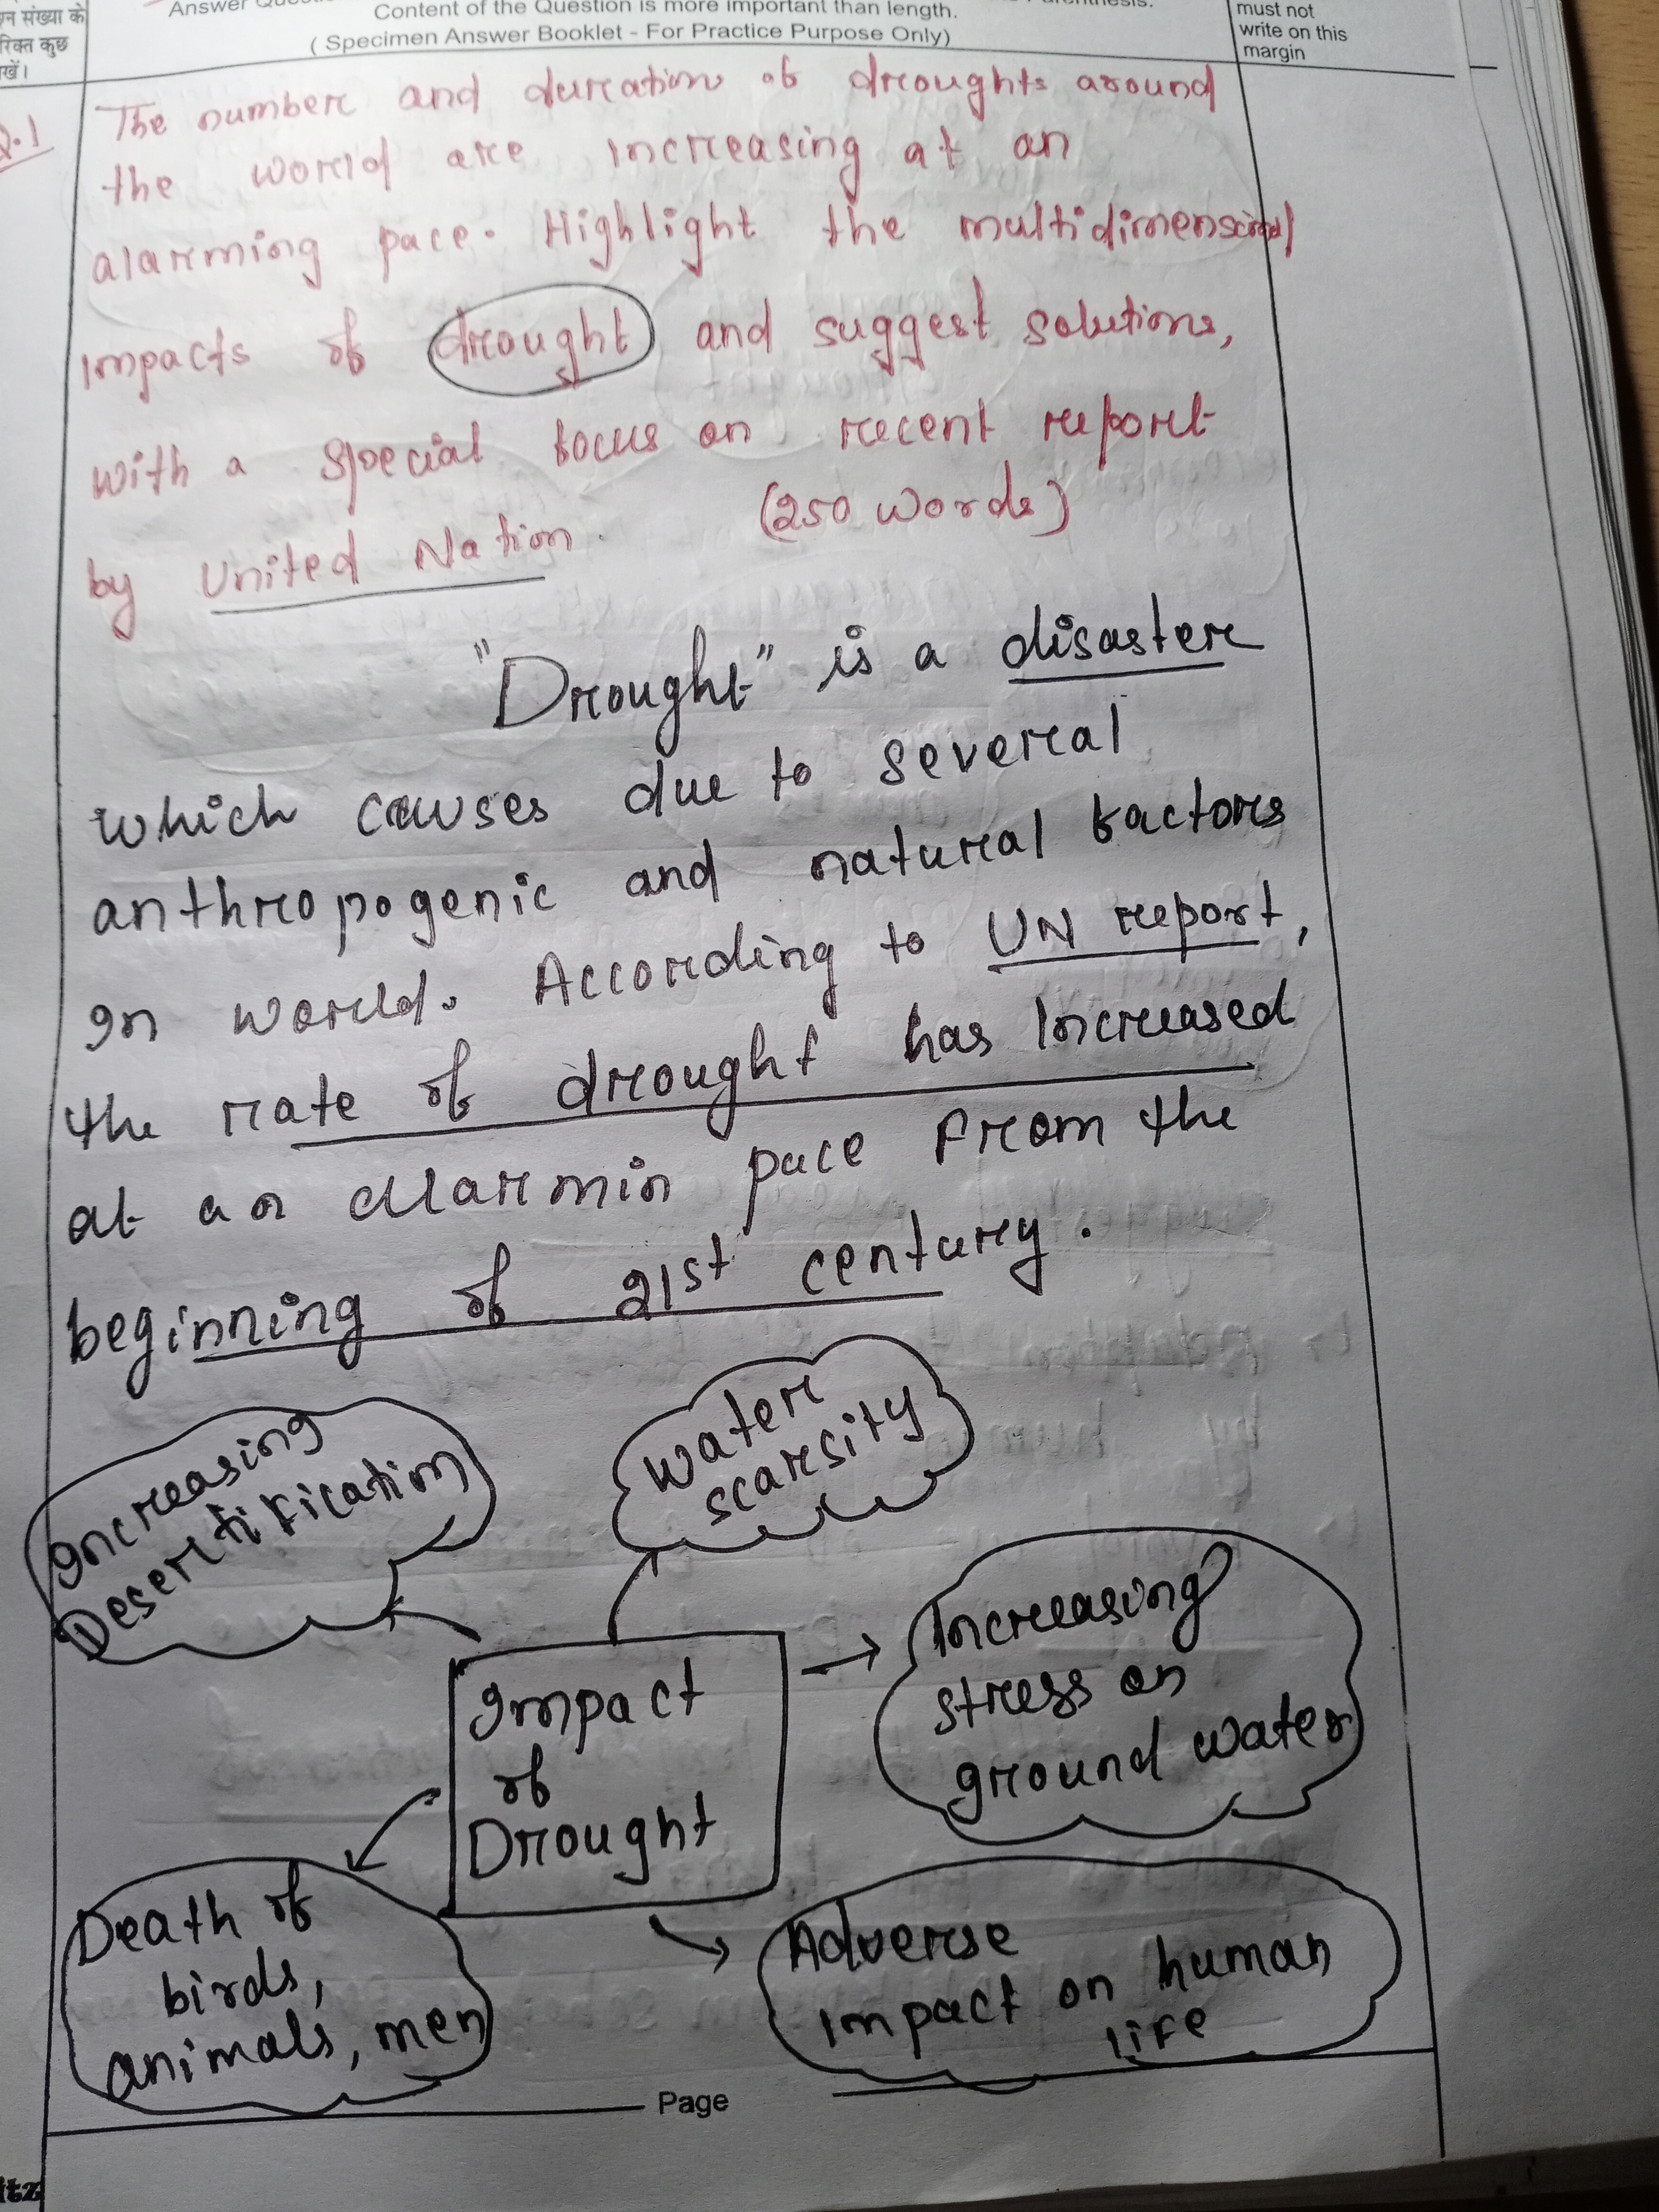 न संख्या के
रिक्त कुछ
खें।
Answer
Content of the Question is more important than length.
( Specimen Answer Booklet - For Practice Purpose Only)
must not
write on this
margin
Q.1
The number and duration of droughts around
the world are increasing at an
alarming pace. Highlight the multidimensional
impacts of drought and suggest solutions,
with a special focus on recent report
by United Nation. (250 words)
"Drought" is a disaster
which causes due to several
anthropogenic and natural factors
in world. According to UN report,
the rate of drought has increased
at an alarmin pace from the
beginning of 21st century.
Increasing
Desertification
Water
scarsity
Increasing
stress on
ground water
Impact
of
Drought
Death of
birds,
animals, men
Adverse
impact on human
life
Page
itz